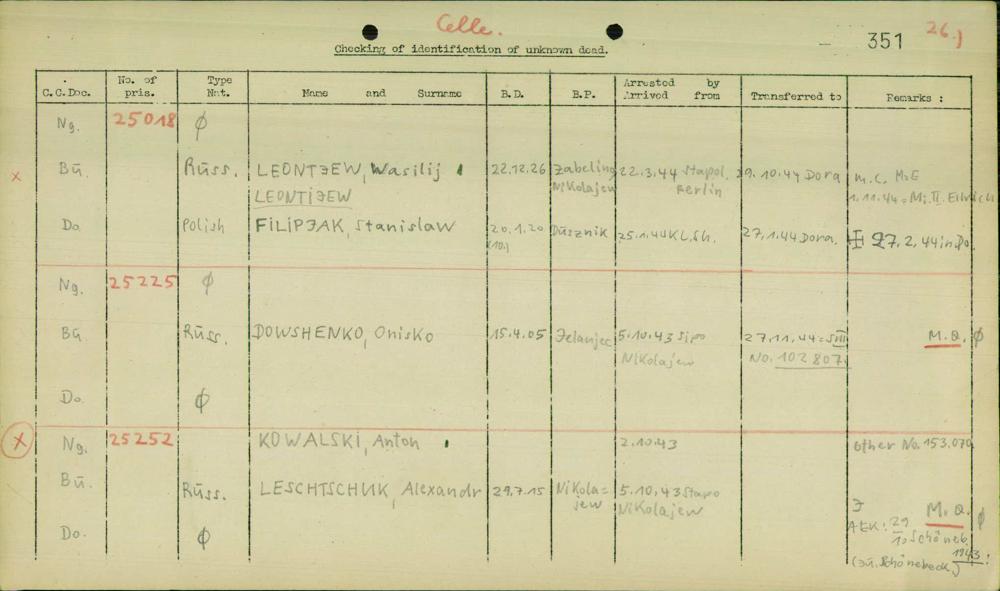 Celle.
Checking of identification of unknown dead.
- 351 26.)
C.C.Doc. No. of pris. Type Nat. Name and Surname B.D. B.P. Arrested by Arrived from Transferred to Remarks :
Ng. 25018 ϕ
x Bū. Rūss. LEONTJEW, Wasilij 22.12.26 Zabelino 22.3.44 Stapol. 29.10.44 Dora m.c.
LEONTIJEW Nikolajew Berlin 1.11.44 = M:II.Ellrich
Do Polish FILIPJAK, Stanislaw 20.1.20 Dūsznik 25.1.44 KL.Sh. 27.1.44 Dora. 27.2.44 in Do
(10.)
Ng. 25225 ϕ
Bū. Rūss. DOWSHENKO, Onisko 15.4.05 Jelanjec 5.10.43 Sipo 27.11.44 = SIII M.Q. ϕ
Nikolajew No. 102807
Do. ϕ
x Ng. 25252 KOWALSKI, Anton 2.10.43 other No. 153.070
Bū. Rūss. LESCHTSCHUK, Alexandr 29.7.15 Nikola= 5.10.43 Stapo
jew Nikolajew
M.Q. ϕ
AEK: 29
Do. ϕ 10 Schöneb. 1943 :
(Bū. Schönebeck)